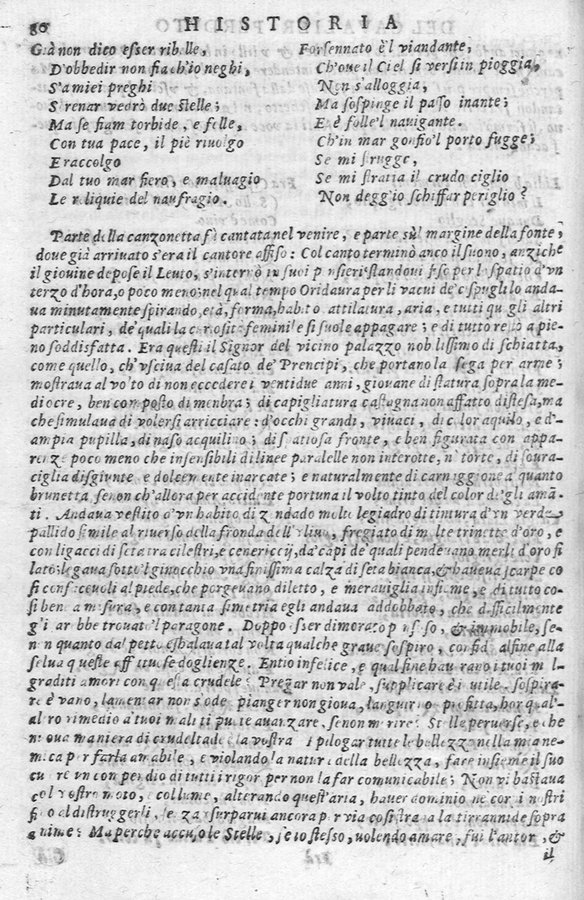 80 HISTORIA
Già non dico esser ribelle,
D'obbedir non fia ch'io neghi,
S'a miei preghi
Serenar vedrò due stelle;
Ma se fiam torbide, e felle,
Con tua pace, il piè rivolgo
E raccolgo
Dal tuo mar fiero, e malvagio
Le reliquie del naufragio.
Forsennato è'l viandante,
Ch'oue il Ciel si versi in pioggia,
Non s'alloggia,
Ma sospinge il passo inante;
E è folle'l nauigante.
Ch'in mar gonfio'l porto fugge;
Se mi strugge,
Se mi stratia il crudo ciglio
Non degg'io schiffar periglio?
Parte della canzonetta fù cantata nel venire, e parte sùl margine della fonte,
doue già arrivato s'era il cantore assiso: Col canto terminò anco il suono, anziche
il giouine depose il Leuto, s'internò in suoi pensieri standoui fiso per lo spatio d'vn
terzo d'hora, o poco meno; nel qual tempo Oridaura per li vacui de' cespugli lo anda-
ua minutamente spirando, età, forma, habito attilatura, aria, e tutti qu gli altri
particulari, de' quali la curiosità feminile si suole appagare; e di tutto restò a pie-
no soddisfatta. Era questi il Signor del vicino palazzo nobilissimo di schiatta,
come quello, ch'vsciua del casato de' Prencipi, che portano la sega per arme;
mostraua al volto di non eccedere i ventidue anni, giouane di statura sopra la me-
diocre, ben composto di menbra; di capigliatura castogna non affatto distesa, ma
che simulaua di volersi arricciare: d'occhi grandi, viuaci, di color aquilo, e d'
ampia pupilla, di naso acquilino; di spatiosa fronte, e ben figurata con appa-
renze poco meno che insensibili di linee paralelle non interotte, nè torte, di soura-
ciglia disgiunte e dolcemente inarcate; e naturalmente di carnaggione a quanto
brunetta, se non ch'allora per accidente portaua il volto tinto del color de gli amā-
ti. Andaua vestito d'vn habito di zendado molto legiadro di tintura d'vn verde
pallido simile al riverso della fronda dell'vliuo, fregiato di molte trinette d'oro, e
con ligacci di seta tra cilestri, e cenericcij, da capi de' quali pendeuano merli d'oro fi
lato; legaua sotto'l ginocchio vna finissima calza di seta bianca, & haueua scarpe co
si confaceuoli al piede, che porgeuano diletto, e merauiglia insieme, e di tutto co-
si bene a misura, e con tanta simetria egli andaua addobbato, che difficilmente
gli arebbe trouato'l paragone. Doppo esser dimorato pensoso, & immobile, se-
non quanto dal petto eshalaua tal volta qualche graue sospiro, confidò alfine alla
selua queste affettuose doglienze. Entio infelice, e qual fine hauranno i tuoi mal
graditi amori con questa crudele? Pregar non vale, supplicare è inutile, sospira-
re è vano, lamentar non s'ode, pianger non gioua, languir non profitta, hor qual'
altro rimedio a tuoi mali ti puote auanzare, se non morire? Stelle peruerse, e che
nuoua maniera di crudeltade è la vostra? Epilogar tutte le bellezze nella mia ne-
mica per farla amabile, e violando la natura della bellezza, fare insieme il suo
cuore vn compendio di tutti i rigor per non la far comunicabile; Non vi bastaua
col vostro moto, e co'l lume, alterando quest'aria, hauer dominio ne' corpi nostri
fino al distruggerli, senza vsurparui ancora per via così strana la tirannide sopra
anime? Ma perche accuso le Stelle, se io stesso, volendo amare, fui l'autor, &
il